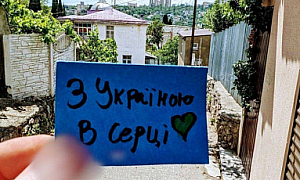 З Україною
В серці